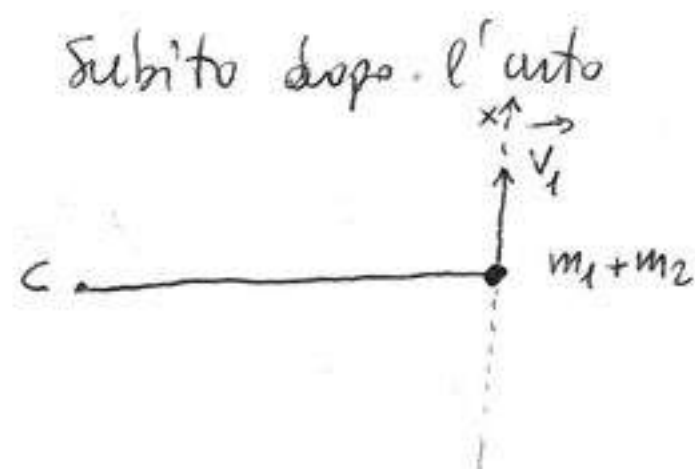 Subito dopo l'urto
x
V₁
C
m₁+m₂